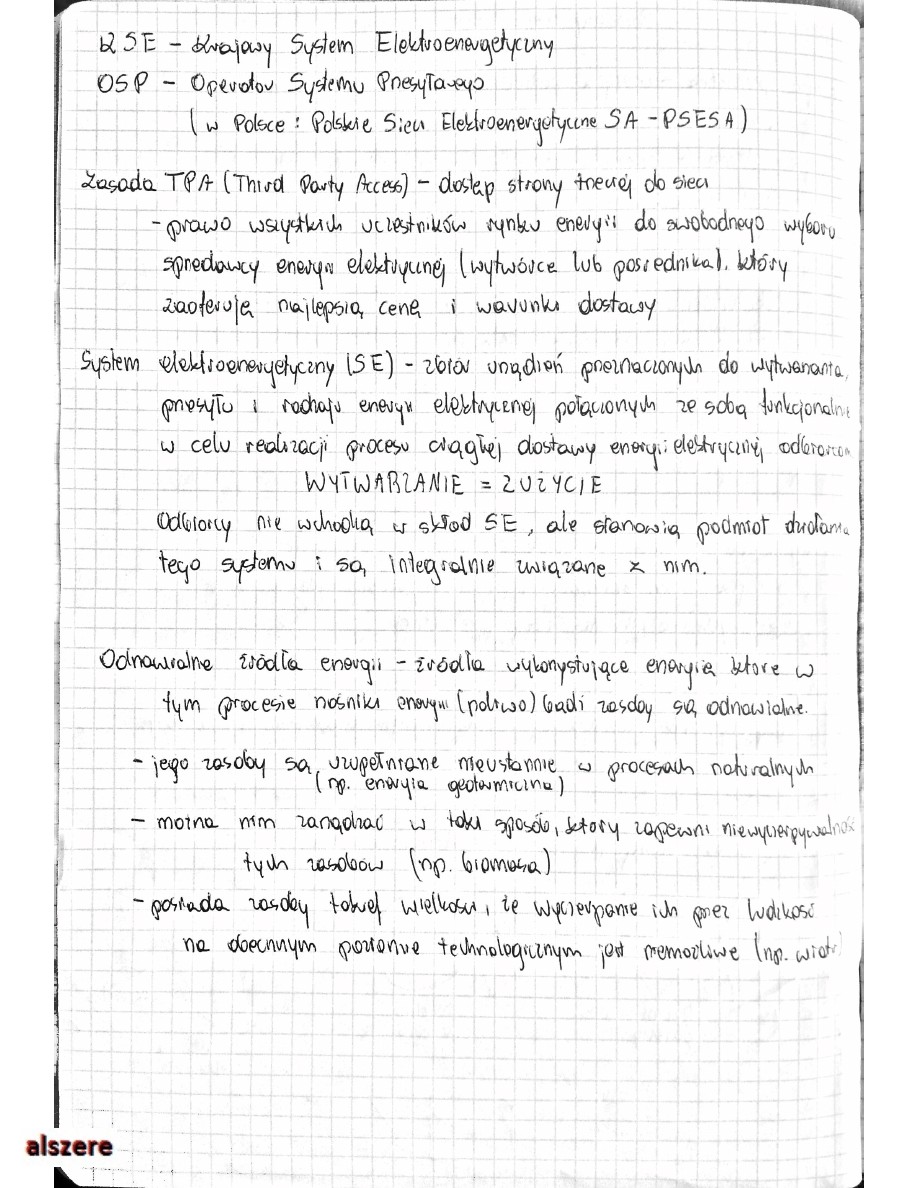 KSE – Krajowy System Elektroenergetyczny
OSP – Operator Systemu Przesyłowego
(w Polsce : Polskie Sieci Elektroenergetyczne SA – PSESA)
Zasada TPA (Third Party Access) – dostęp strony trzeciej do sieci
– prawo wszystkich uczestników rynku energii do swobodnego wyboru
sprzedawcy energii elektrycznej (wytwórcę lub pośrednika), który
zaoferują najlepszą cenę i warunki dostawy
System elektroenergetyczny (SE) – zbiór urządzeń przeznaczonych do wytwarzania,
przesyłu i rozdziału energii elektrycznej połączonych ze sobą funkcjonalnie
w celu realizacji procesu ciągłej dostawy energii elektrycznej odbiorcom
WYTWARZANIE = ZUŻYCIE
Odbiorcy nie wchodzą w skład SE, ale stanowią podmiot działania
tego systemu i są integralnie związane z nim.
Odnawialne źródła energii – źródła wykorzystujące energię które w
tym procesie nośniki energii (paliwo) bądź zasoby są odnawialne.
– jego zasoby są uzupełniane nieustannie w procesach naturalnych
(np. energia geotermiczna)
– można nim zarządzać w taki sposób, który zapewni niewyczerpywalność
tych zasobów (np. biomasa)
– posiada zasoby takiej wielkości, że wyczerpanie ich przez ludzkość
na obecnym poziomie technologicznym jest niemożliwe (np. wiatr)
alszere